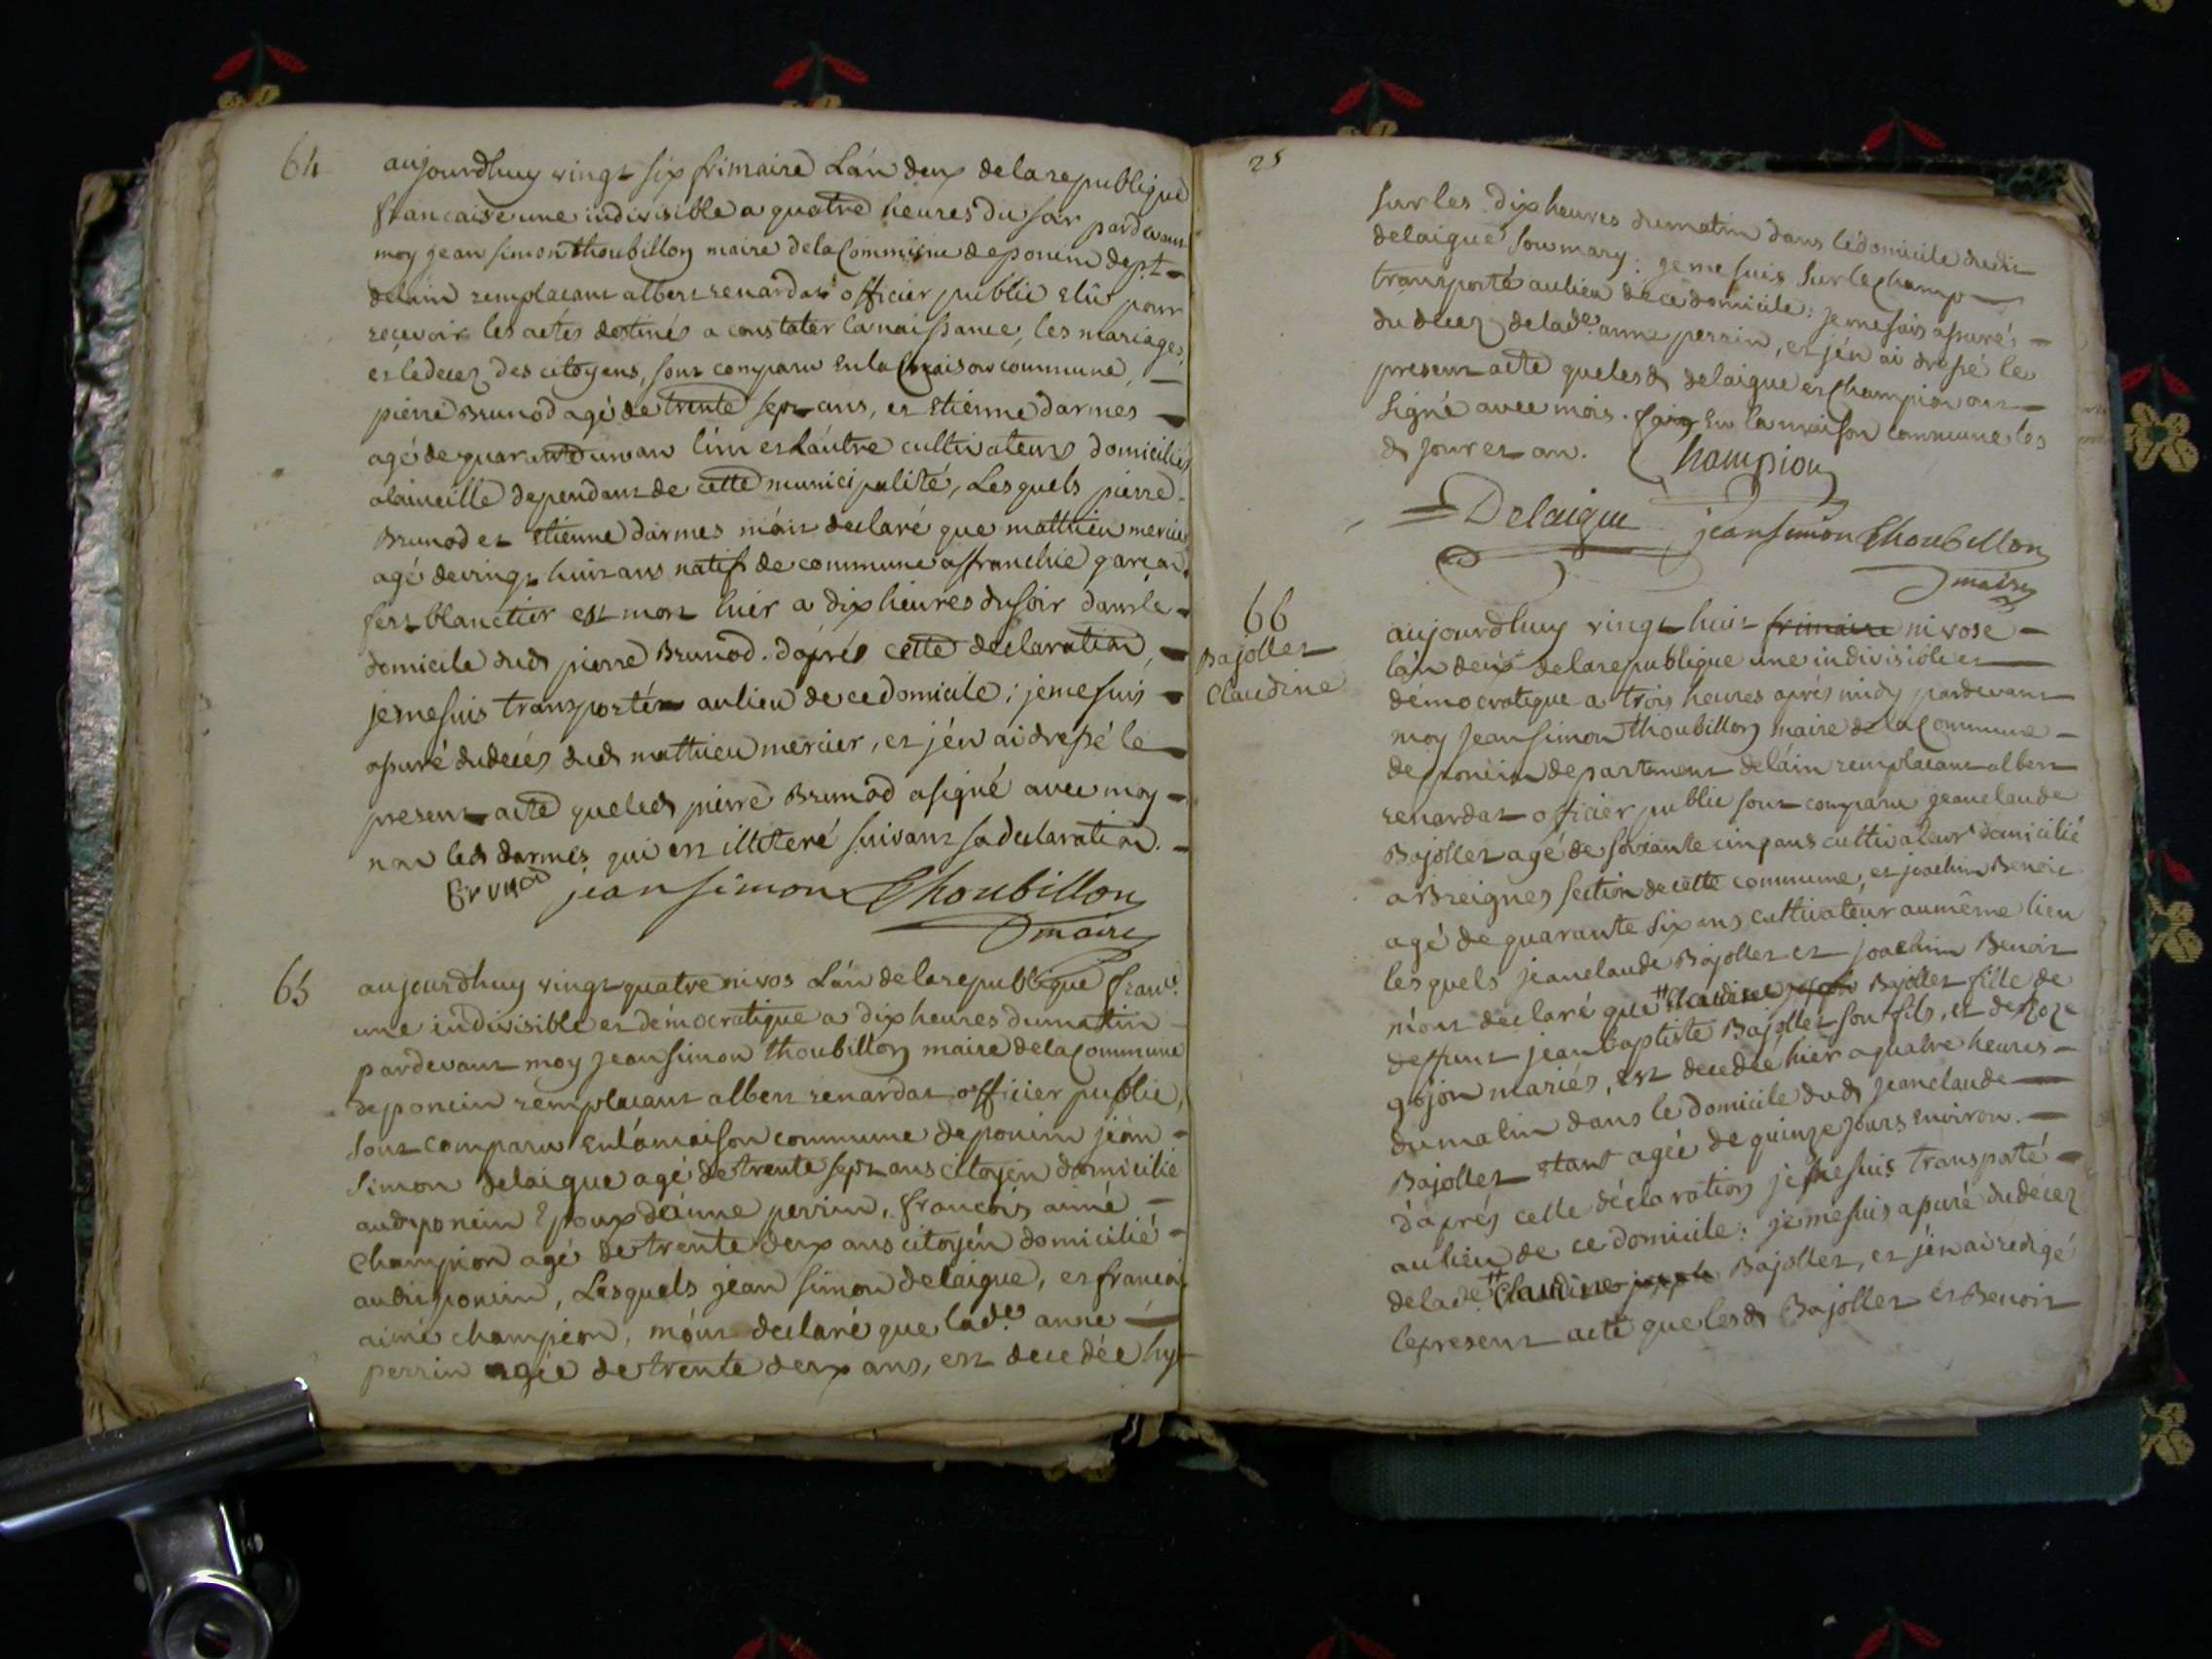 64
aujourdhuy vingt six frimaire L'an deux de la republique
francaise une indivisible a quatre heures du soir pardevant
moy jean simon thoubillon maire de la Commune de poncin dept
delain remplacant albert renardat officier public elû pour
recevoir les actés destinés a constater la naissance, les mariages,
et le decez des citoyens, sont comparu en la maison commune,
pierre Brunod agé de trente sept ans, et etienne darmes
agé de quarante un an l'un et lautre cultivateurs domiciliés
a dependant de cette municipalité, Lesquels pierre
Brunod et etienne darmes m'ont declaré que matthieu mercier
agé de vingt huit ans natif de commune affranchie garçon
ferblantier est mort hier a dix heures du soir dans le
domicile dud pierre Brunod. d'aprés cette declaration,
je me suis transporté au lieu de ce domicile ; je me suis
assuré du decés dud matthieu mercier, et j'en ai dressé le
present acte que led pierre Brunod a signé avec moy
non led darmes qui est illiteré suivant sa declaration.
Brunod jean simon Thoubillon
maire
65
aujourdhuy vingt quatre nivos L'an de la republique franc.
une indivisible et démocratique a dix heures du matin
pardevant moy jean simon thoubillon maire de la Commune
de poncin remplacant albert renardat officier public,
sont comparu en la maison commune de poncin jean
simon delaigue agé de trente sept ans citoyen domicilié
aud poncin Epoux d'anne perrin, francois aimé
Champion agé de trente deux ans citoyen domicilié
audit poncin, Lesquels jean simon delaigue, et francois
aimé champion, m'ont declaré que lad.e anne
perrin agée de trente deux ans, est decedée hyer
25
sur les dix heures du matin dans le domicile dudit
delaigue son mary : je me suis sur le champ
transporté au lieu de ce domicile : je me suis assurés
du decez de lad.e anne perrin, et j'en ai dressé le
present acte que lesd delaigue et champion ont
signé avec mois. fait en la maison commune les
d jour et an. Champion
Delaigue jean simon Thoubillon
maire
66
Bajollet
Claudine
aujourdhuy vingt huit frimaire nivose
l'an deux de la republique une indivisible et
démocratique a trois heures aprés midy pardevant
moy Jean simon thoubillon maire de la Commune
de poncin departement de l'ain remplacant albert
renardat officier public sont comparu jean claude
Bajollet agé de soixante cinq ans cultivateur domicilié
a Breignes section de cette commune, et joachim Benoit
agé de quarante six ans cultivateur au même lieu
lesquels jean claude Bajollet et joachim Benoit
m'ont declaré que # Claudine joseph Bajollet fille de
deffunt jean baptiste Bajollet son fils, et de Roze
gojon mariés, est decedée hier a quatre heures
du matin dans le domicile dud Jean claude
Bajollet etant agée de quinze jours environ.
d'aprés cette déclaration je me suis transporté
au lieu de ce domicile : je me suis assuré du decez
de lad.e # Claudine joseph Bajollet, et j'en ai redigé
le present acte que lesd Bajollet et Benoit